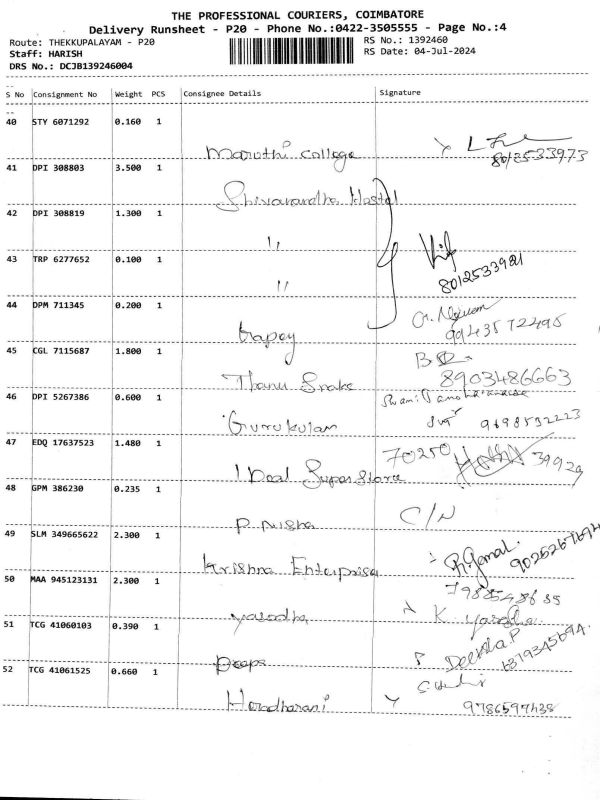 THE PROFESSIONAL COURIERS, COIMBATORE
Delivery Runsheet - P20 - Phone No.:0422-3505555 - Page No.:4
Route: THEKKUPALAYAM - P20
RS No.: 1392460
Staff: HARISH
RS Date: 04-Jul-2024
DRS No.: DCJB139246004
S No Consignment No Weight PCS Consignee Details Signature
40 STY 6071292 0.160 1
Maruthi College
8012533973
41 DPI 308803 3.500 1
Hostel
42 DPI 308819 1.300 1
"
43 TRP 6277652 0.100 1
8012533981
"
44 DPM 711345 0.200 1
9943572495
45 CGL 7115687 1.800 1
8903486663
Thanu Snake
46 DPI 5267386 0.600 1
9698532223
Gurukulam
47 EDQ 17637523 1.480 1
70250 39929
I Deal Super Store
48 GPM 386230 0.235 1
C/N
P. Nisha
49 SLM 349665622 2.300 1
Krishna Enterprise
50 MAA 945123131 2.300 1
K. Yasodha
Yasodha
51 TCG 41060103 0.390 1
Deeksha.P
Deepa
52 TCG 41061525 0.660 1
9786597438